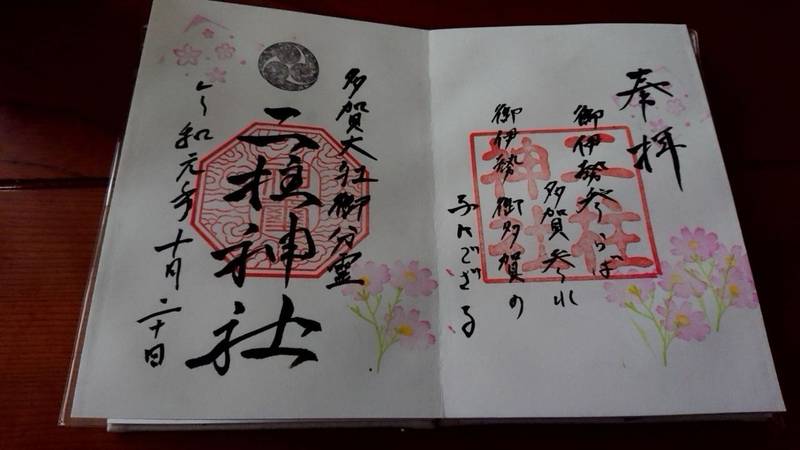 奉拝
御伊勢参らば
多賀参れ
御伊勢御多賀の
子でござる
二柱
神社
多賀大社御分霊
二柱神社
令和元年十月二十日